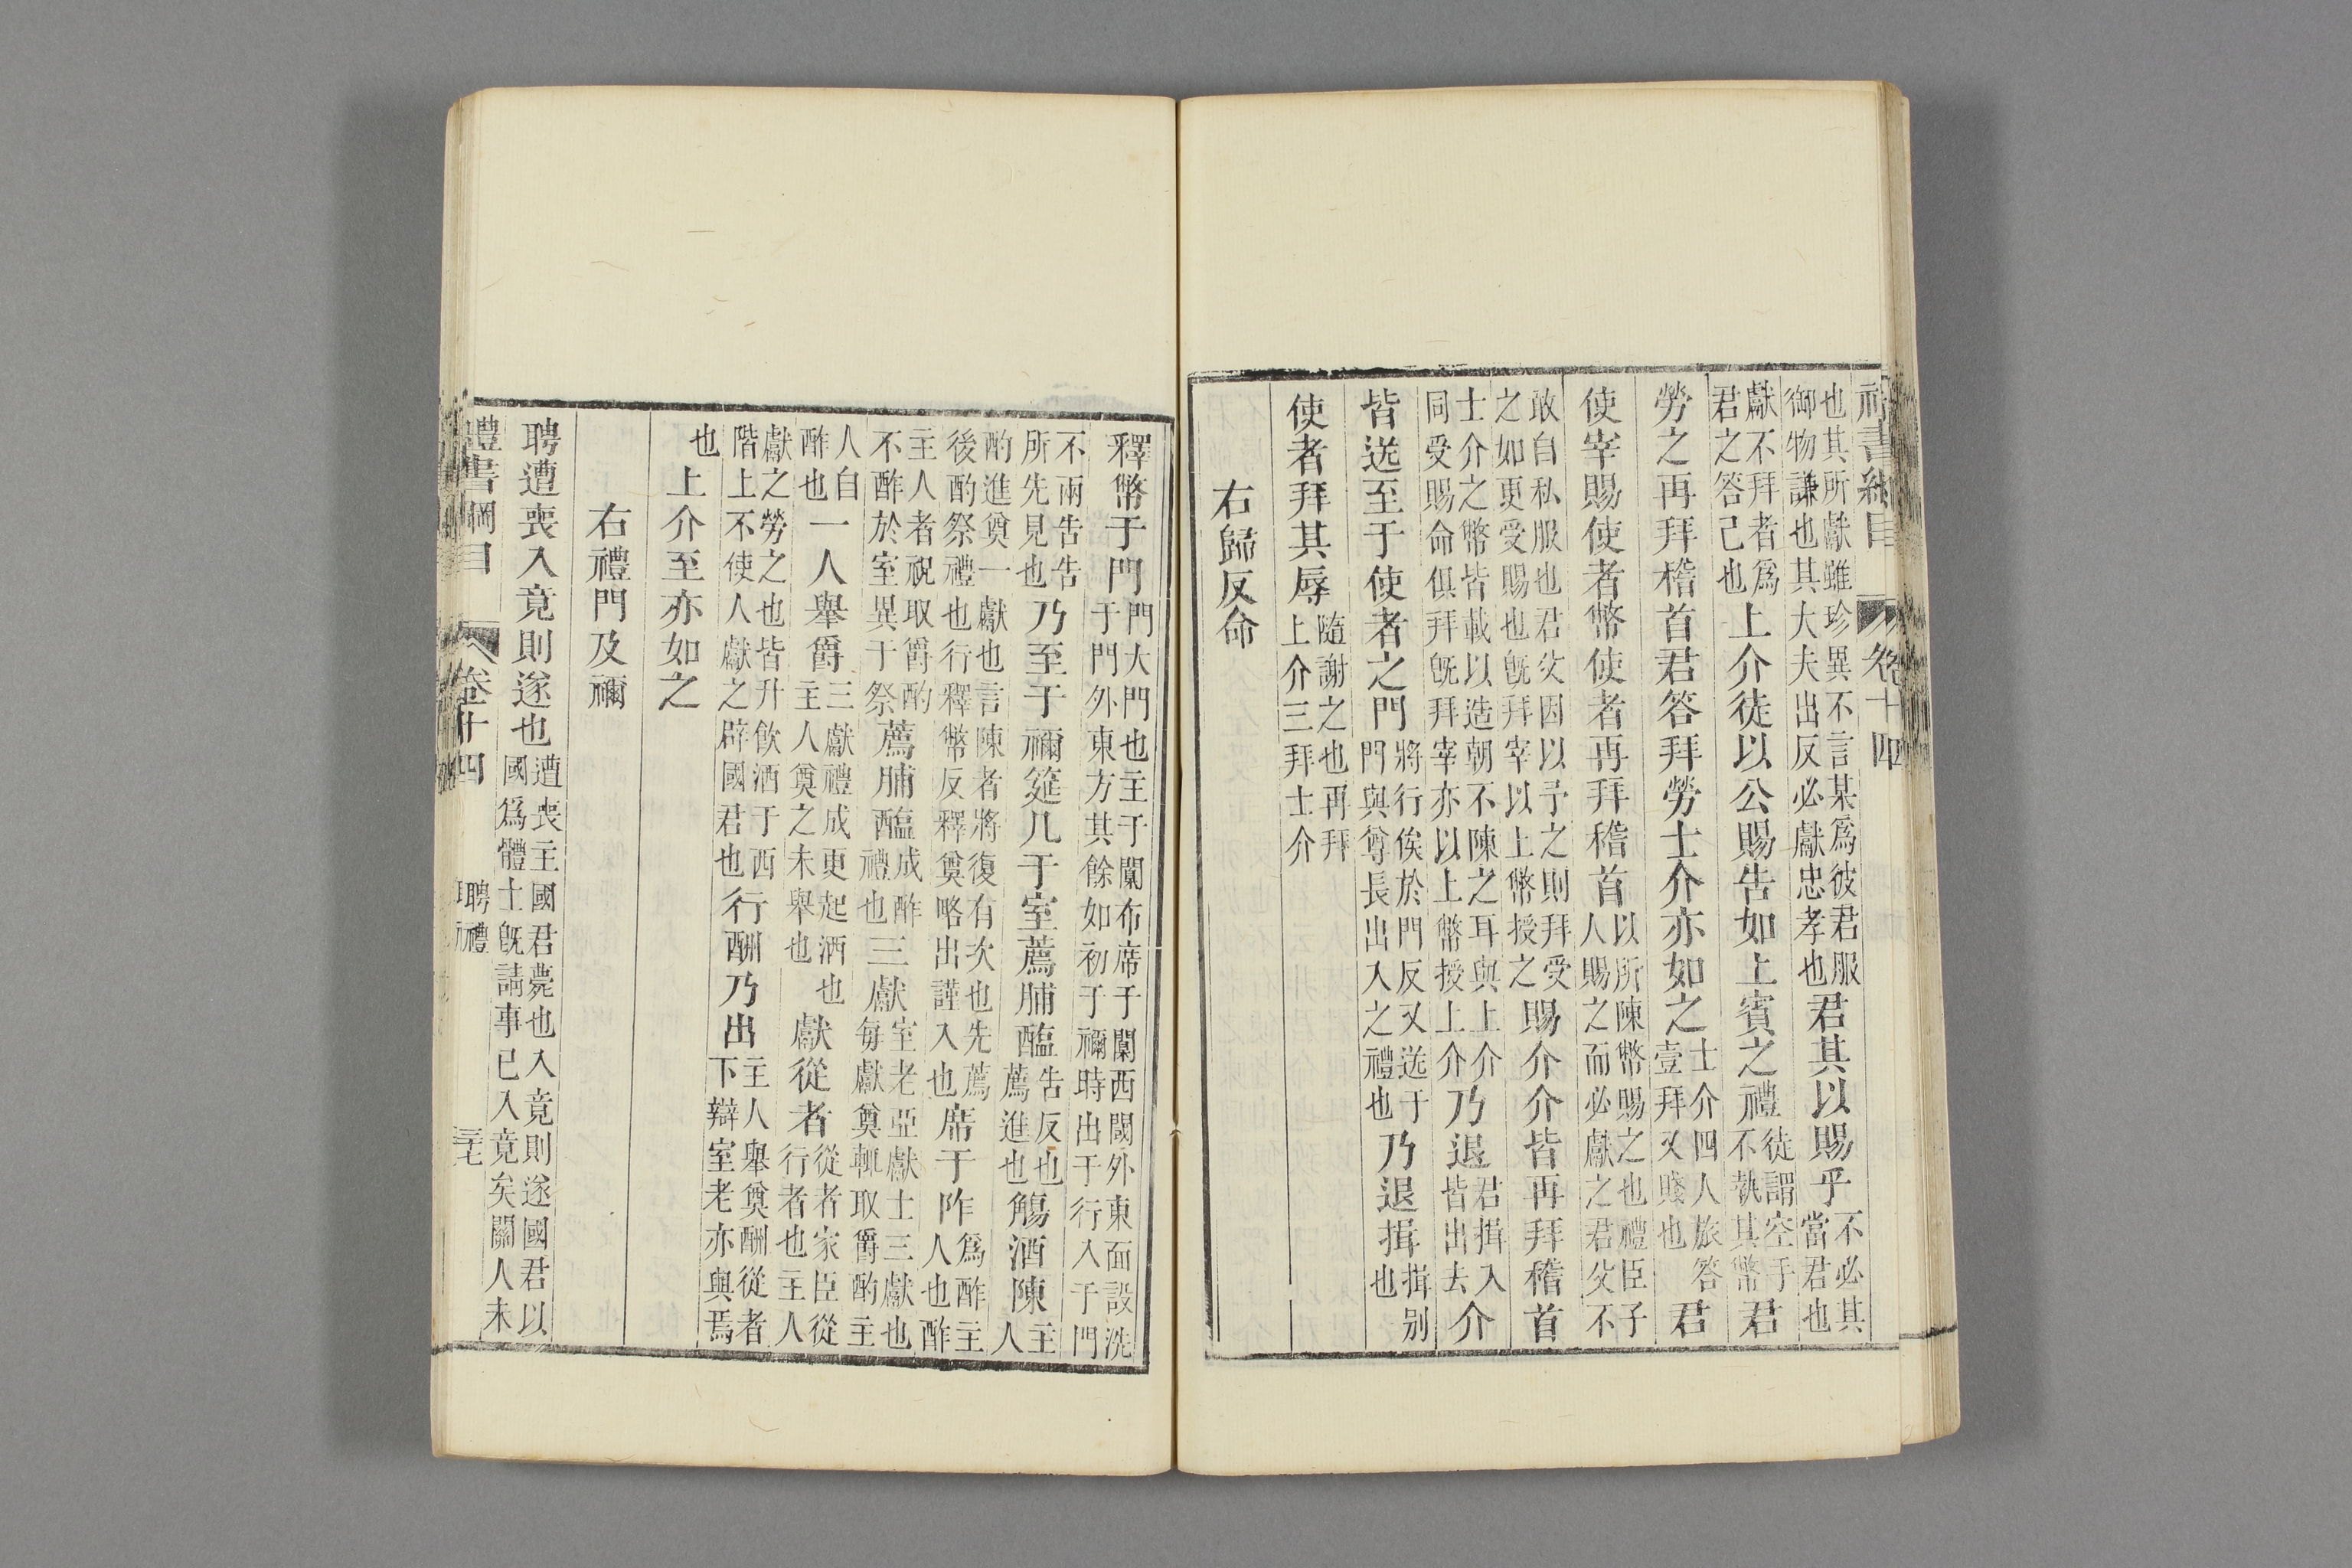 禮書綱目 卷十四
也其所獻雖珍異不言某爲彼君服
御物謙也其大夫出反必獻忠孝也
君其以賜乎
不必其
當君也
獻不拜者爲
君之答己也
上介徒以公賜告如上賓之禮
徒謂空手
不執其幣
君
勞之再拜稽首君答拜勞士介亦如之
士介四人旅答
壹拜又賤也
君
使宰賜使者幣使者再拜稽首
以所陳幣賜之也禮臣子
人賜之而必獻之君父不
敢自私服也君父因以予之則拜受
之如更受賜也旣拜宰以上幣授之
賜介介皆再拜稽首
士介之幣皆載以造朝不陳之耳與上介
同受賜命俱拜旣拜宰亦以上幣授上介
乃退
君揖入
皆出去
介
皆送至于使者之門
將行俟於門反又送于
門與尊長出入之禮也
乃退揖
揖別
也
使者拜其辱
隨謝之也再拜
上介三拜士介
右歸反命
釋幣于門
門大門也主于闑布席于闑西閾外東面設洗
于門外東方其餘如初于禰時出于行入于門
不兩告告
所先見也
乃至于禰筵几于室薦脯醢
告反也
薦進也
觴酒陳
主
人
酌進奠一獻也言陳者將復有次也先薦
後酌祭禮也行釋幣反釋奠略出謹入也
席于阼
爲酢主
人也酢
主人者祝取爵酌
不酢於室異于祭
薦脯醢
成酢
禮也
三獻
室老亞獻士三獻也
每獻奠輒取爵酌主
人自
酢也
一人舉爵
三獻禮成更起酒也
主人奠之未舉也
獻從者
從者家臣從
行者也主人
獻之勞之也皆升飲酒于西
階上不使人獻之辟國君也
行酬乃出
主人舉奠酬從者
下辯室老亦與焉
也
上介至亦如之
右禮門及禰
聘遭喪入竟則遂也
遭喪主國君薨也入竟則遂國君以
國爲體士旣請事已入竟矣關人未
禮書綱目 卷十四 聘禮 三七